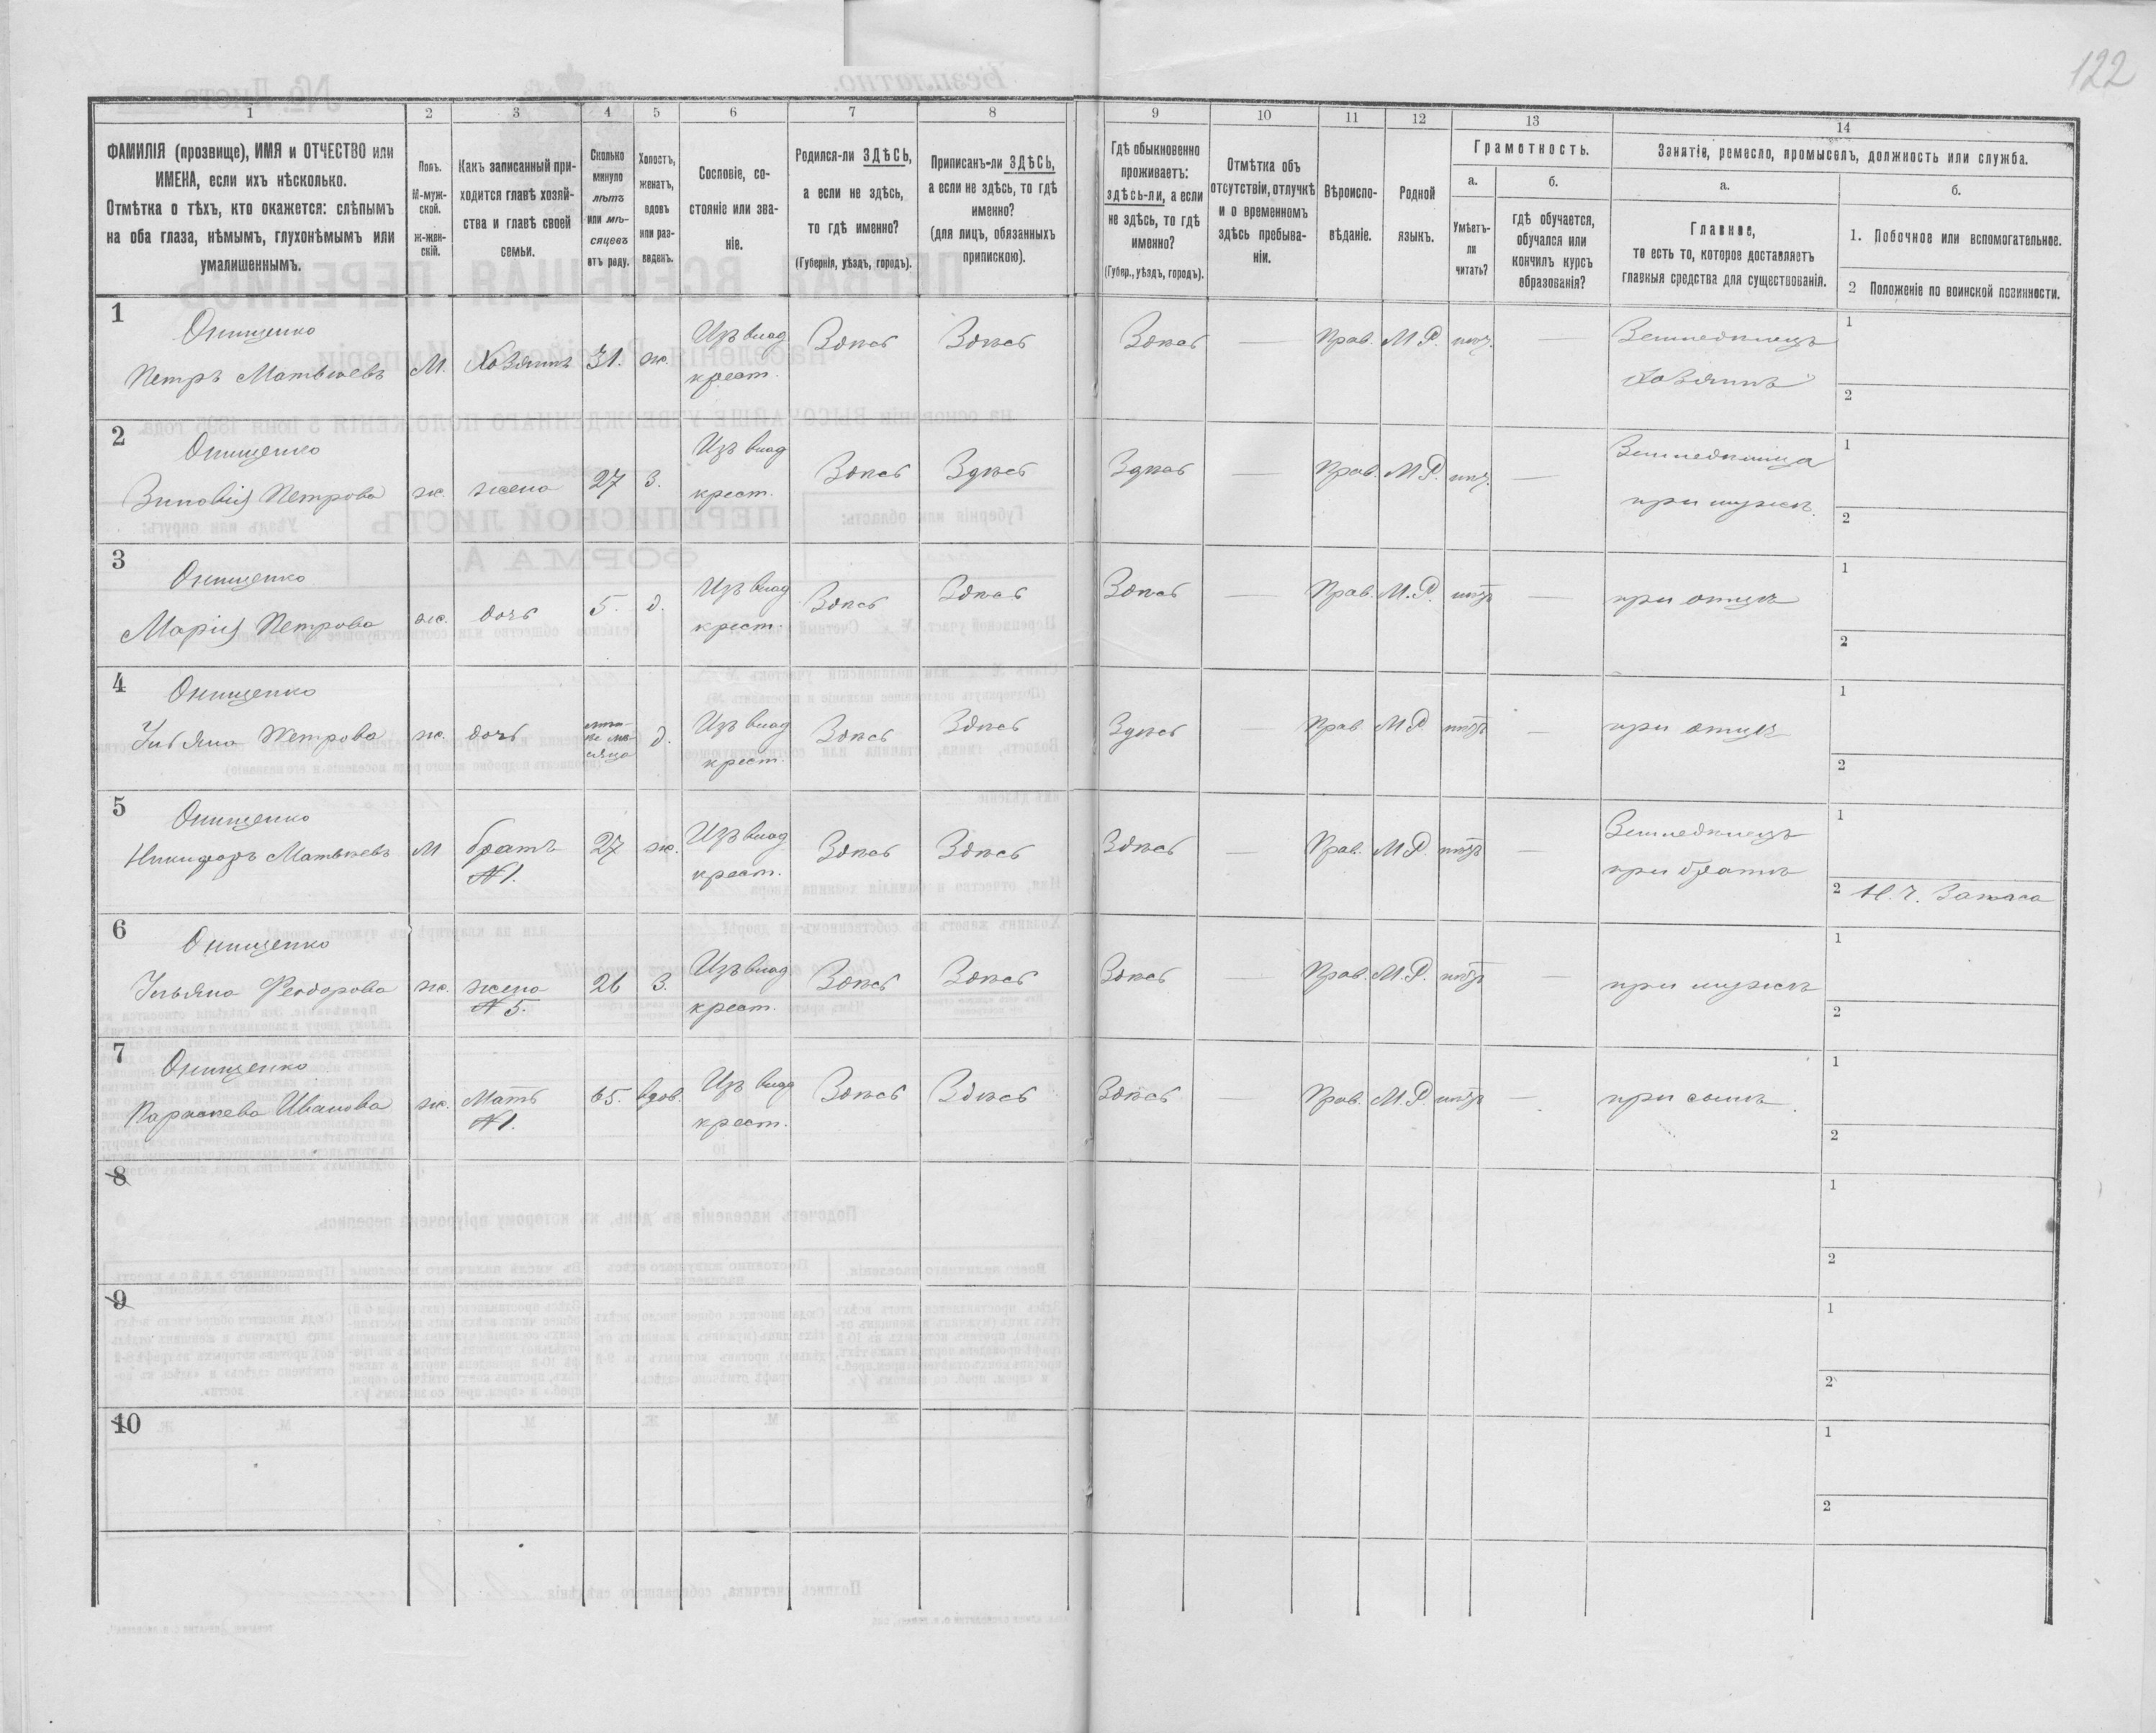 122
1 2 3 4 5 6 7 8 9 10 11 12 13 14
ФАМИЛІЯ (прозвище), ИМЯ и ОТЧЕСТВО или
ИМЕНА, если ихъ нѣсколько.
Отмѣтка о тѣхъ, кто окажется: слѣпымъ
на оба глаза, нѣмымъ, глухонѣмымъ или
умалишеннымъ.
Полъ.
М-муж-
ской.
Ж-жен-
скій.
Какъ записанный при-
ходится главѣ хозяй-
ства и главѣ своей
семьи.
Сколько
минуло
лѣтъ
или мѣ-
сяцевъ
отъ роду.
Холостъ,
женатъ,
вдовъ
или раз-
веденъ.
Сословіе, со-
стояніе или зва-
ніе.
Родился-ли ЗДѢСЬ,
а если не здѣсь,
то гдѣ именно?
(Губернія, уѣздъ, городъ).
Приписанъ-ли ЗДѢСЬ,
а если не здѣсь, то гдѣ
именно?
(для лицъ, обязанныхъ
припискою).
Гдѣ обыкновенно
проживаетъ:
здѣсь-ли, а если
не здѣсь, то гдѣ
именно?
(Губер., уѣздъ, городъ).
Отмѣтка объ
отсутствіи, отлучкѣ
и о временномъ
здѣсь пребыва-
ніи.
Вѣроиспо-
вѣданіе.
Родной
языкъ.
Грамотность.
а.
Умѣетъ-
ли
читать?
б.
гдѣ обучается,
обучался или
кончилъ курсъ
образованія?
Занятіе, ремесло, промыселъ, должность или служба.
а.
Главное,
то есть то, которое доставляетъ
главныя средства для существованія.
б.
1. Побочное или вспомогательное.
2 Положеніе по воинской повинности.
1
Онищенко
Петръ Матвѣевъ М. Хозяинъ 31. ж. Изъ влад. крест. Здѣсь Здѣсь Здѣсь — Прав. М.Р. — Земледѣлецъ
хозяинъ
1
2
2
Онищенко
Зиновія Петрова ж. жена 27 з. Изъ влад. крест. Здѣсь Здѣсь Здѣсь — Прав. М.Р. — Земледѣлица
при мужѣ.
1
2
3
Онищенко
Марія Петрова ж. дочь 5. д. Изъ влад. крест. Здѣсь Здѣсь Здѣсь — Прав. М.Р. — при отцѣ
1
2
4
Онищенко
Ульяна Петрова ж. дочь д. Изъ влад. крест. Здѣсь Здѣсь Здѣсь — Прав. М.Р. — при отцѣ
1
2
5
Онищенко
Никифоръ Матвѣевъ М братъ 27 ж. Изъ влад. крест. Здѣсь Здѣсь Здѣсь — Прав. М.Р. — Земледѣлецъ
№1. при братѣ
1
2 Н. Ч. Запаса
6
Онищенко
Ульяна Феодорова ж. жена 26 з. Изъ влад. крест. Здѣсь Здѣсь Здѣсь — Прав. М.Р. — при мужѣ
№ 5.
1
2
7
Онищенко
Параскева Иванова ж. Мать 65. вдов. Изъ влад. крест. Здѣсь Здѣсь Здѣсь — Прав. М.Р. — при сынѣ.
№1.
1
2
8
1
2
9
1
2
10
1
2